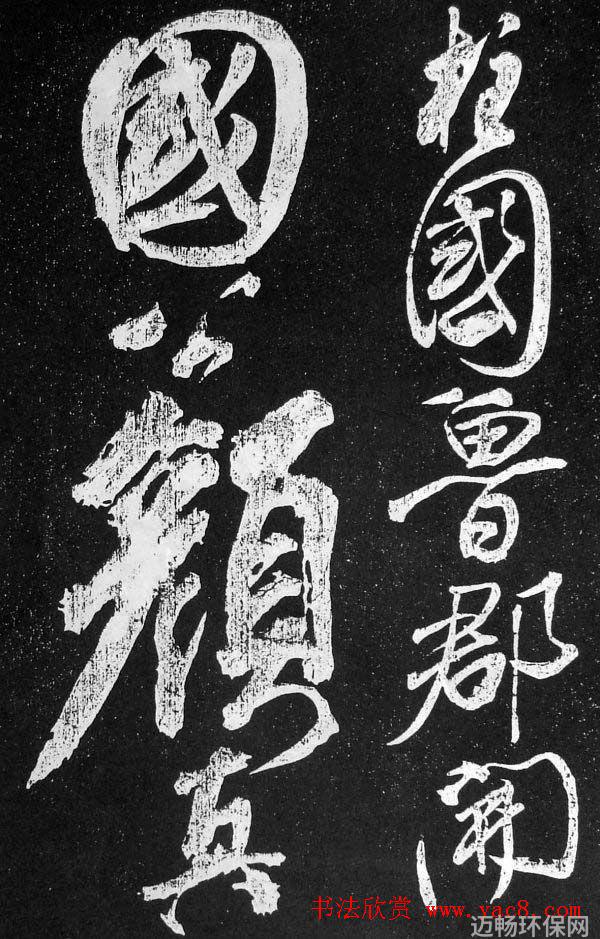 柱國魯郡開
國公顏真
书法欣赏 www.yac8.com
迈畅环保网